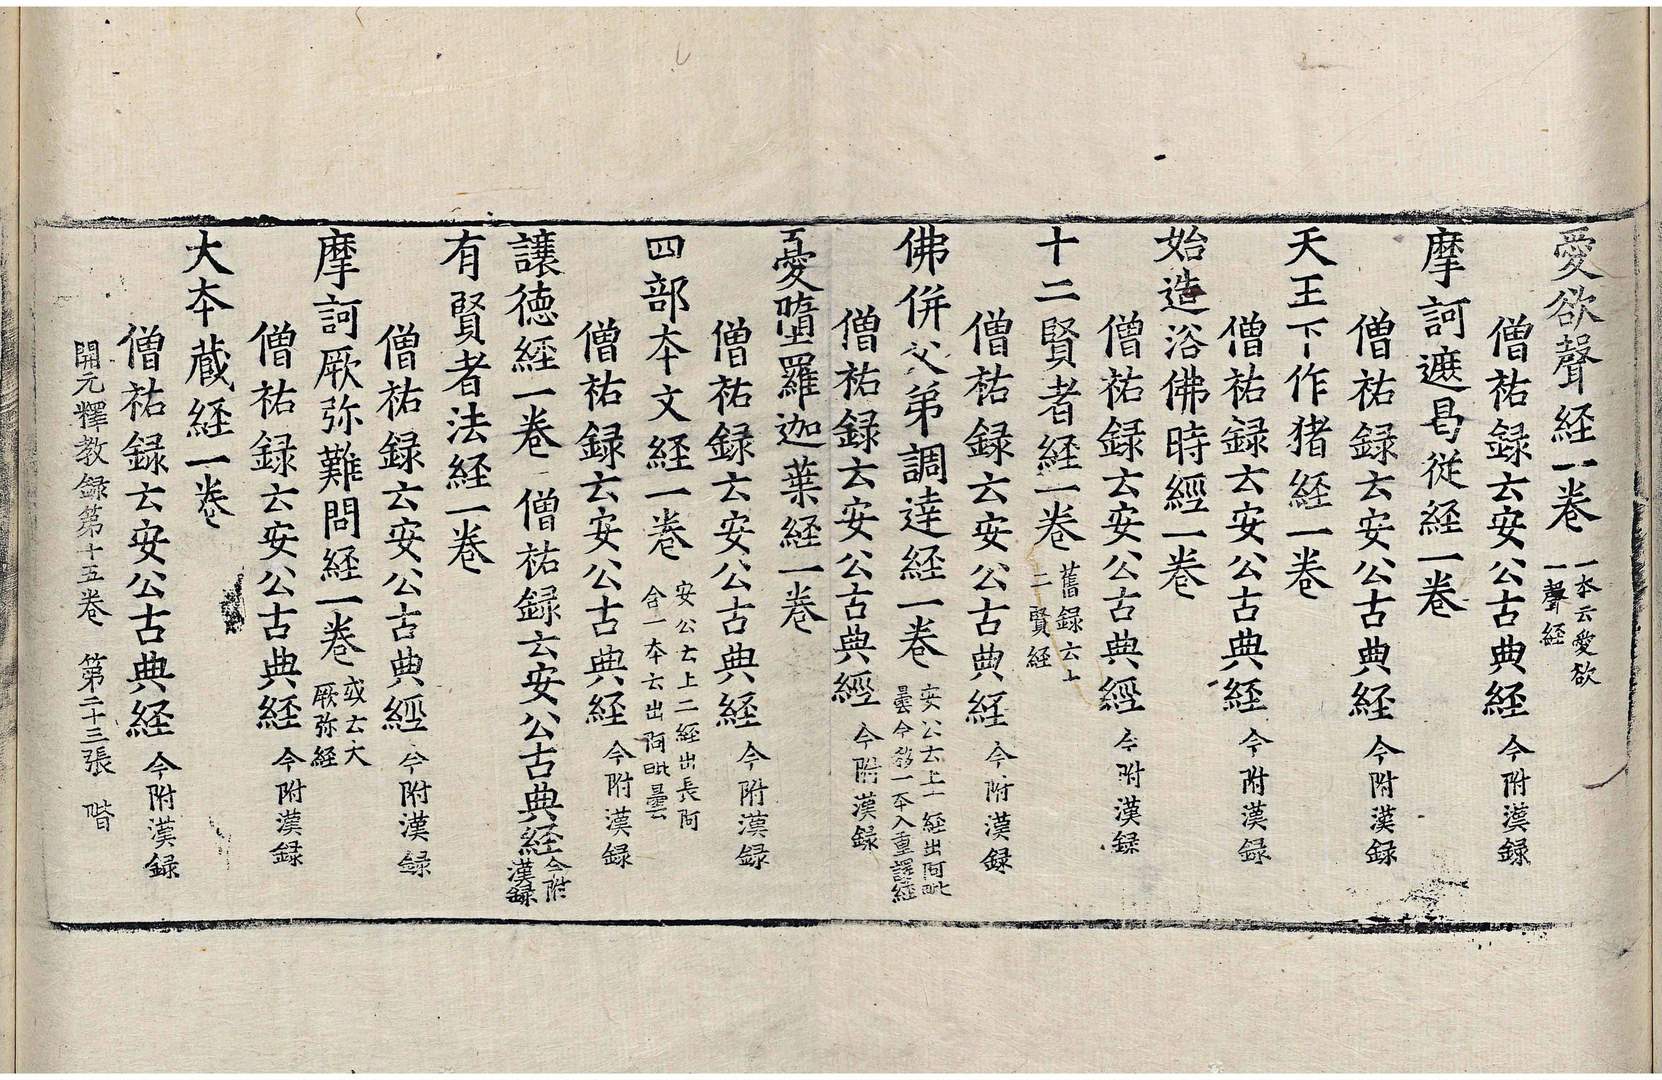 愛欲聲経一巻 一本云愛欲一聲経
僧祐録云安公古典経 今附漢録
摩訶遮曷從経一巻
僧祐録云安公古典経 今附漢録
天王下作猪経一巻
僧祐録云安公古典経 今附漢録
始造浴佛時經一巻
僧祐録云安公古典經 今附漢録
十二賢者経一巻 舊録云十二賢経
僧祐録云安公古典経 今附漢録
佛併父弟調達経一巻 安公云上十経出阿毗曇今移一本入重譯経
僧祐録云安公古典經 今附漢録
憂墮羅迦葉経一巻
僧祐録云安公古典経 今附漢録
四部本文経一巻 安公云上二経出長阿含一本云出阿毗曇
僧祐録云安公古典経 今附漢録
讓徳経一巻 僧祐録云安公古典経 今附漢録
有賢者法経一巻
僧祐録云安公古典經 今附漢録
摩訶厥弥難問経一巻 或云大厥弥経
僧祐録云安公古典経 今附漢録
大本藏経一巻
僧祐録云安公古典経 今附漢録
開元釋教録第十五巻 第二十三張 階